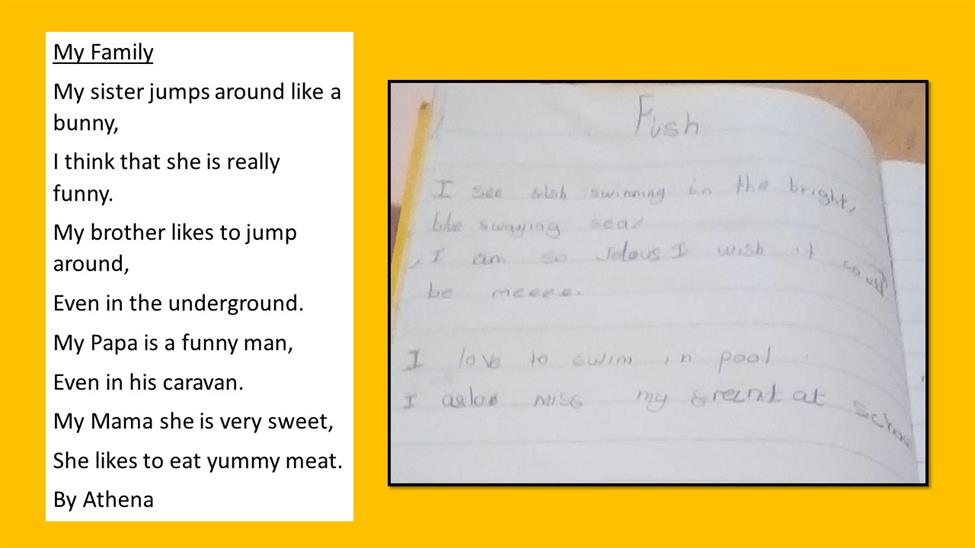 My Family
My sister jumps around like a
bunny,
I think that she is really
funny.
My brother likes to jump
around,
Even in the underground.
My Papa is a funny man,
Even in his caravan.
My Mama she is very sweet,
She likes to eat yummy meat.
By Athena
Fish
I see swimming in the bright,
swaying sea
I am so Jelous I wish it could
be meeee.
I love to swim in pool
I miss my at school